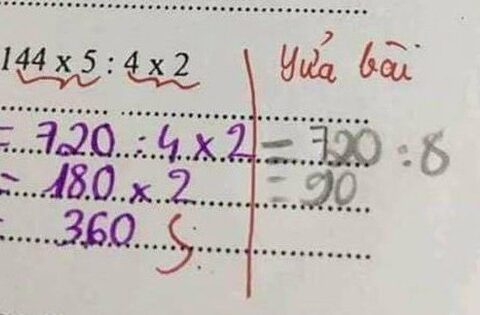 144 x 5 : 4 x 2
= 720 : 4 x 2
= 180 x 2
= 360 S
Yửa bài
= 720 : 8
= 90